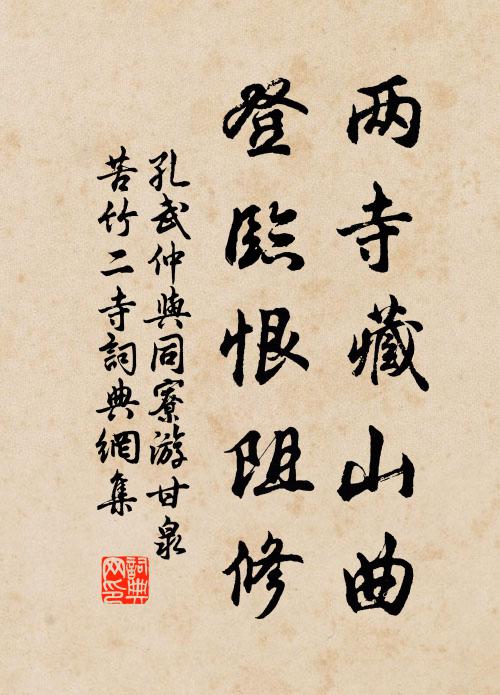 两寺藏山曲
登臨恨阻修
孔武仲與同寮游甘泉
苦竹二寺詞典網集
詞典
网印